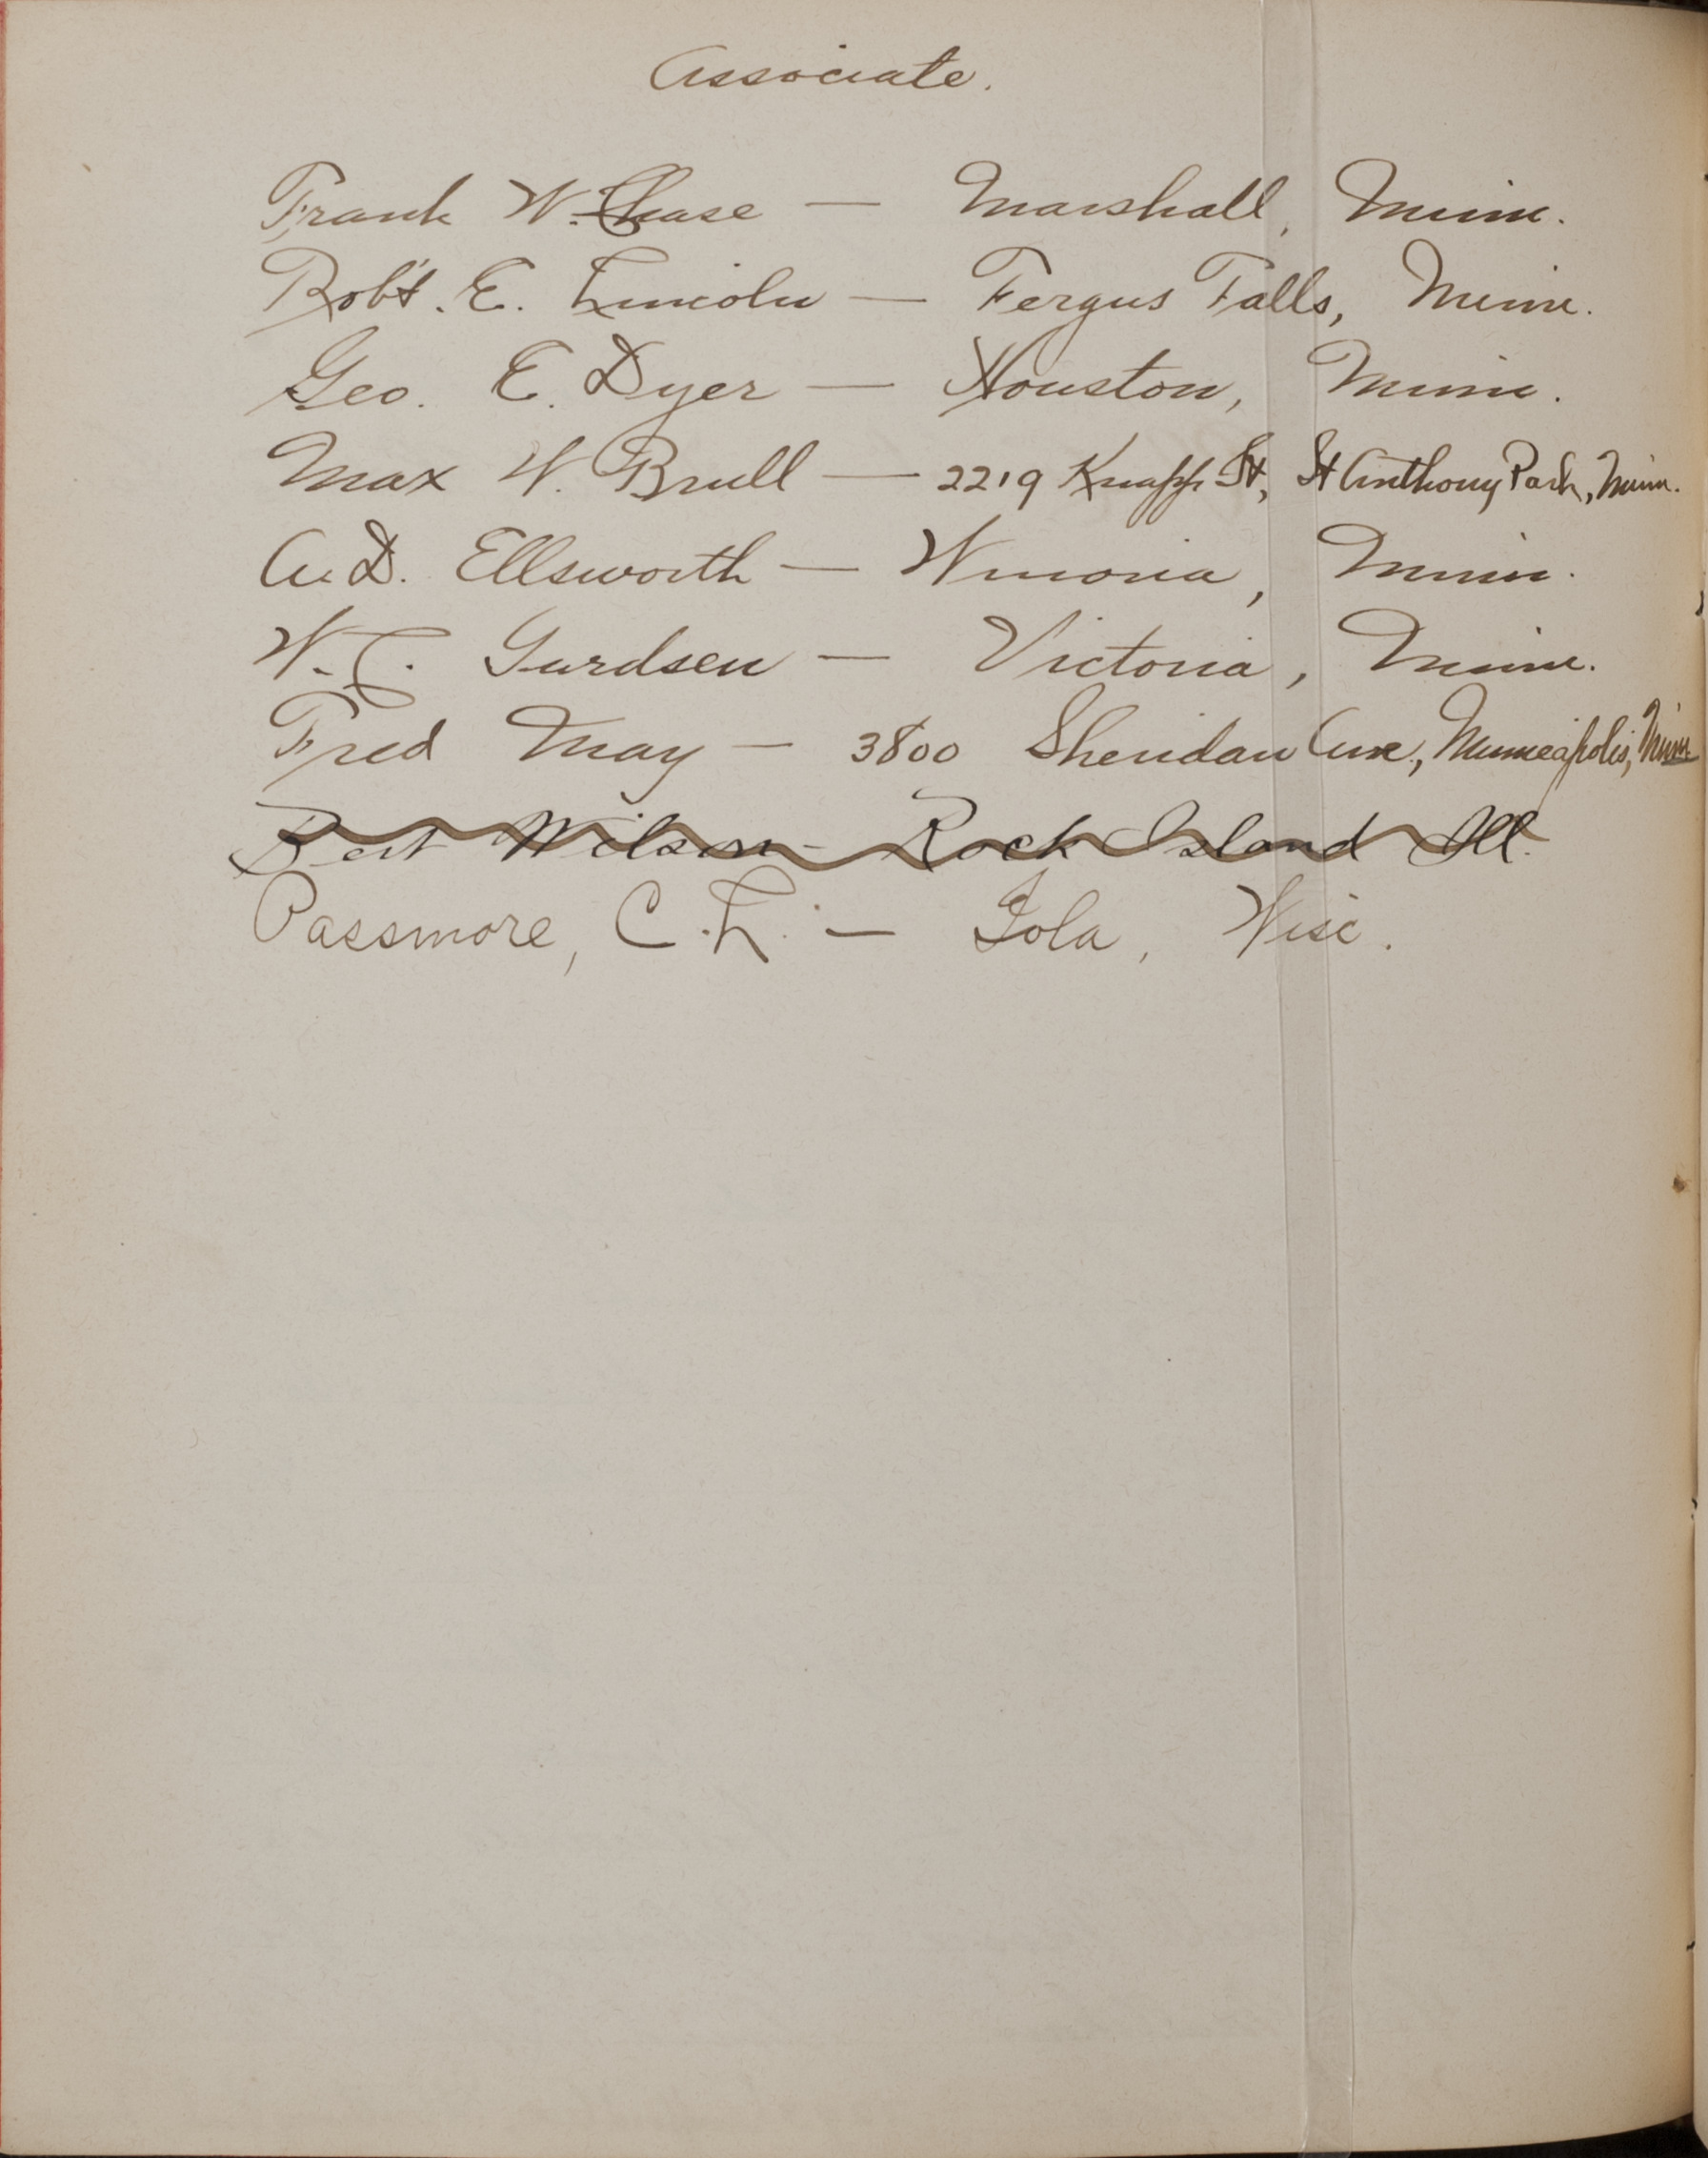 Associate.
Frank W. Chase — Marshall, Minn.
Robt. E. Lincoln — Fergus Falls, Minn.
Geo. E. Dyer — Houston, Minn.
Max W. Brull — 2219 Knapp St, St Anthony Park, Minn.
A. D. Ellsworth — Winona, Minn.
W. C. Gurdsen — Victoria, Minn.
Fred May — 3800 Sheridan Ave., Minneapolis, Minn
Bert Wilson - Rock Island Ill.
Passmore, C. L. — Iola, Wisc.